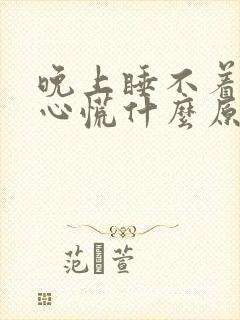 晚上睡不着
心慌什麼原
范 萱